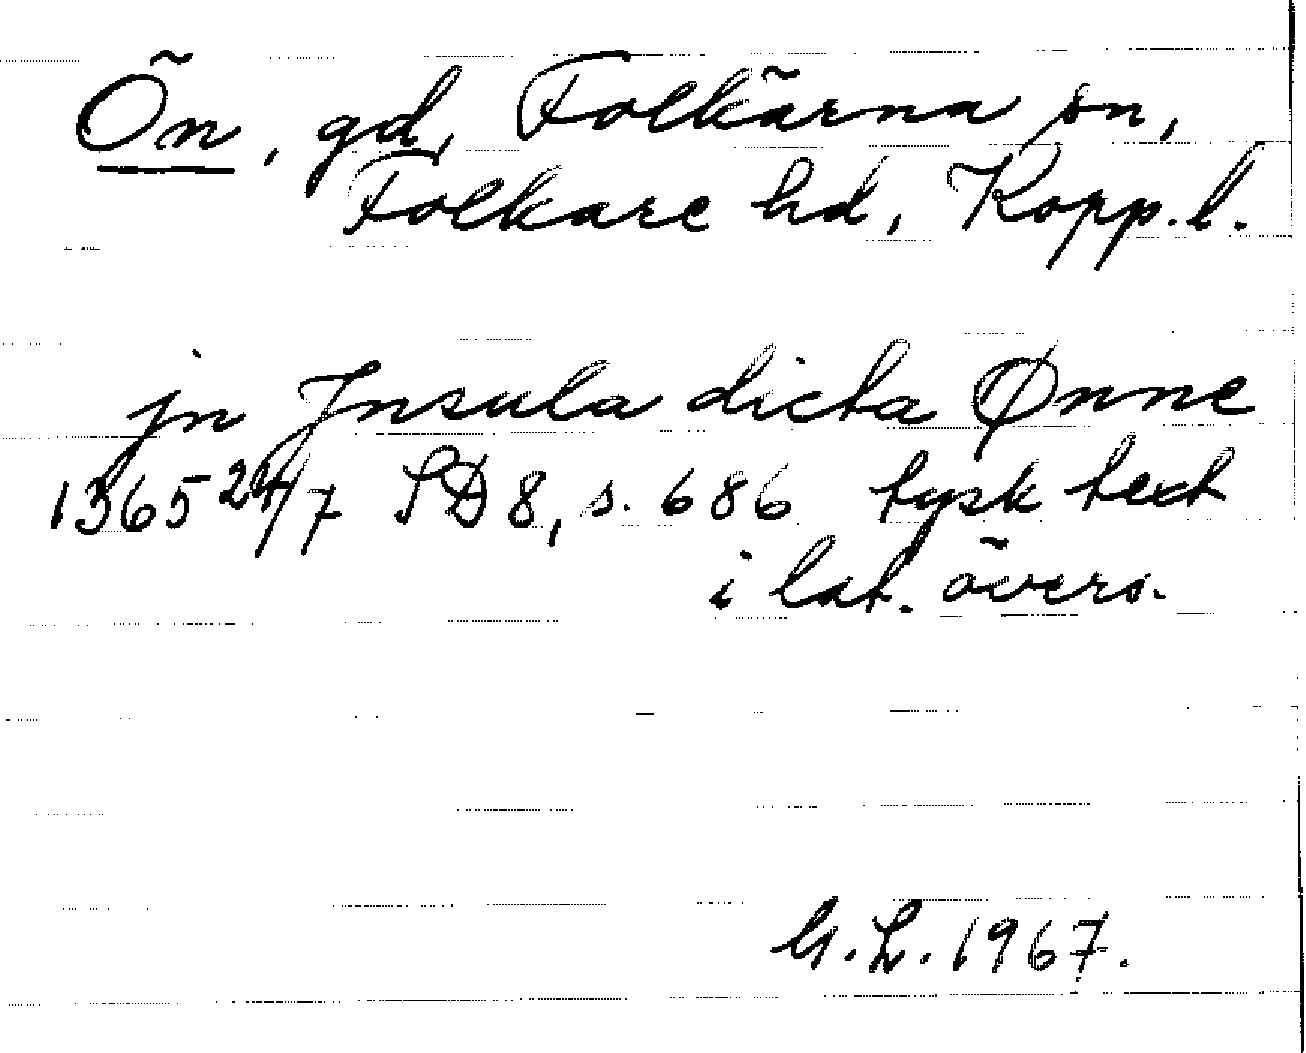 Ön, gd, Folkärna sn,
Folkare hd, Kopp. l.
jn Jnsula dicta Ønne
1365 24/7 SD 8, s. 686 tysk text
i lat. övers.
G. L. 1967.